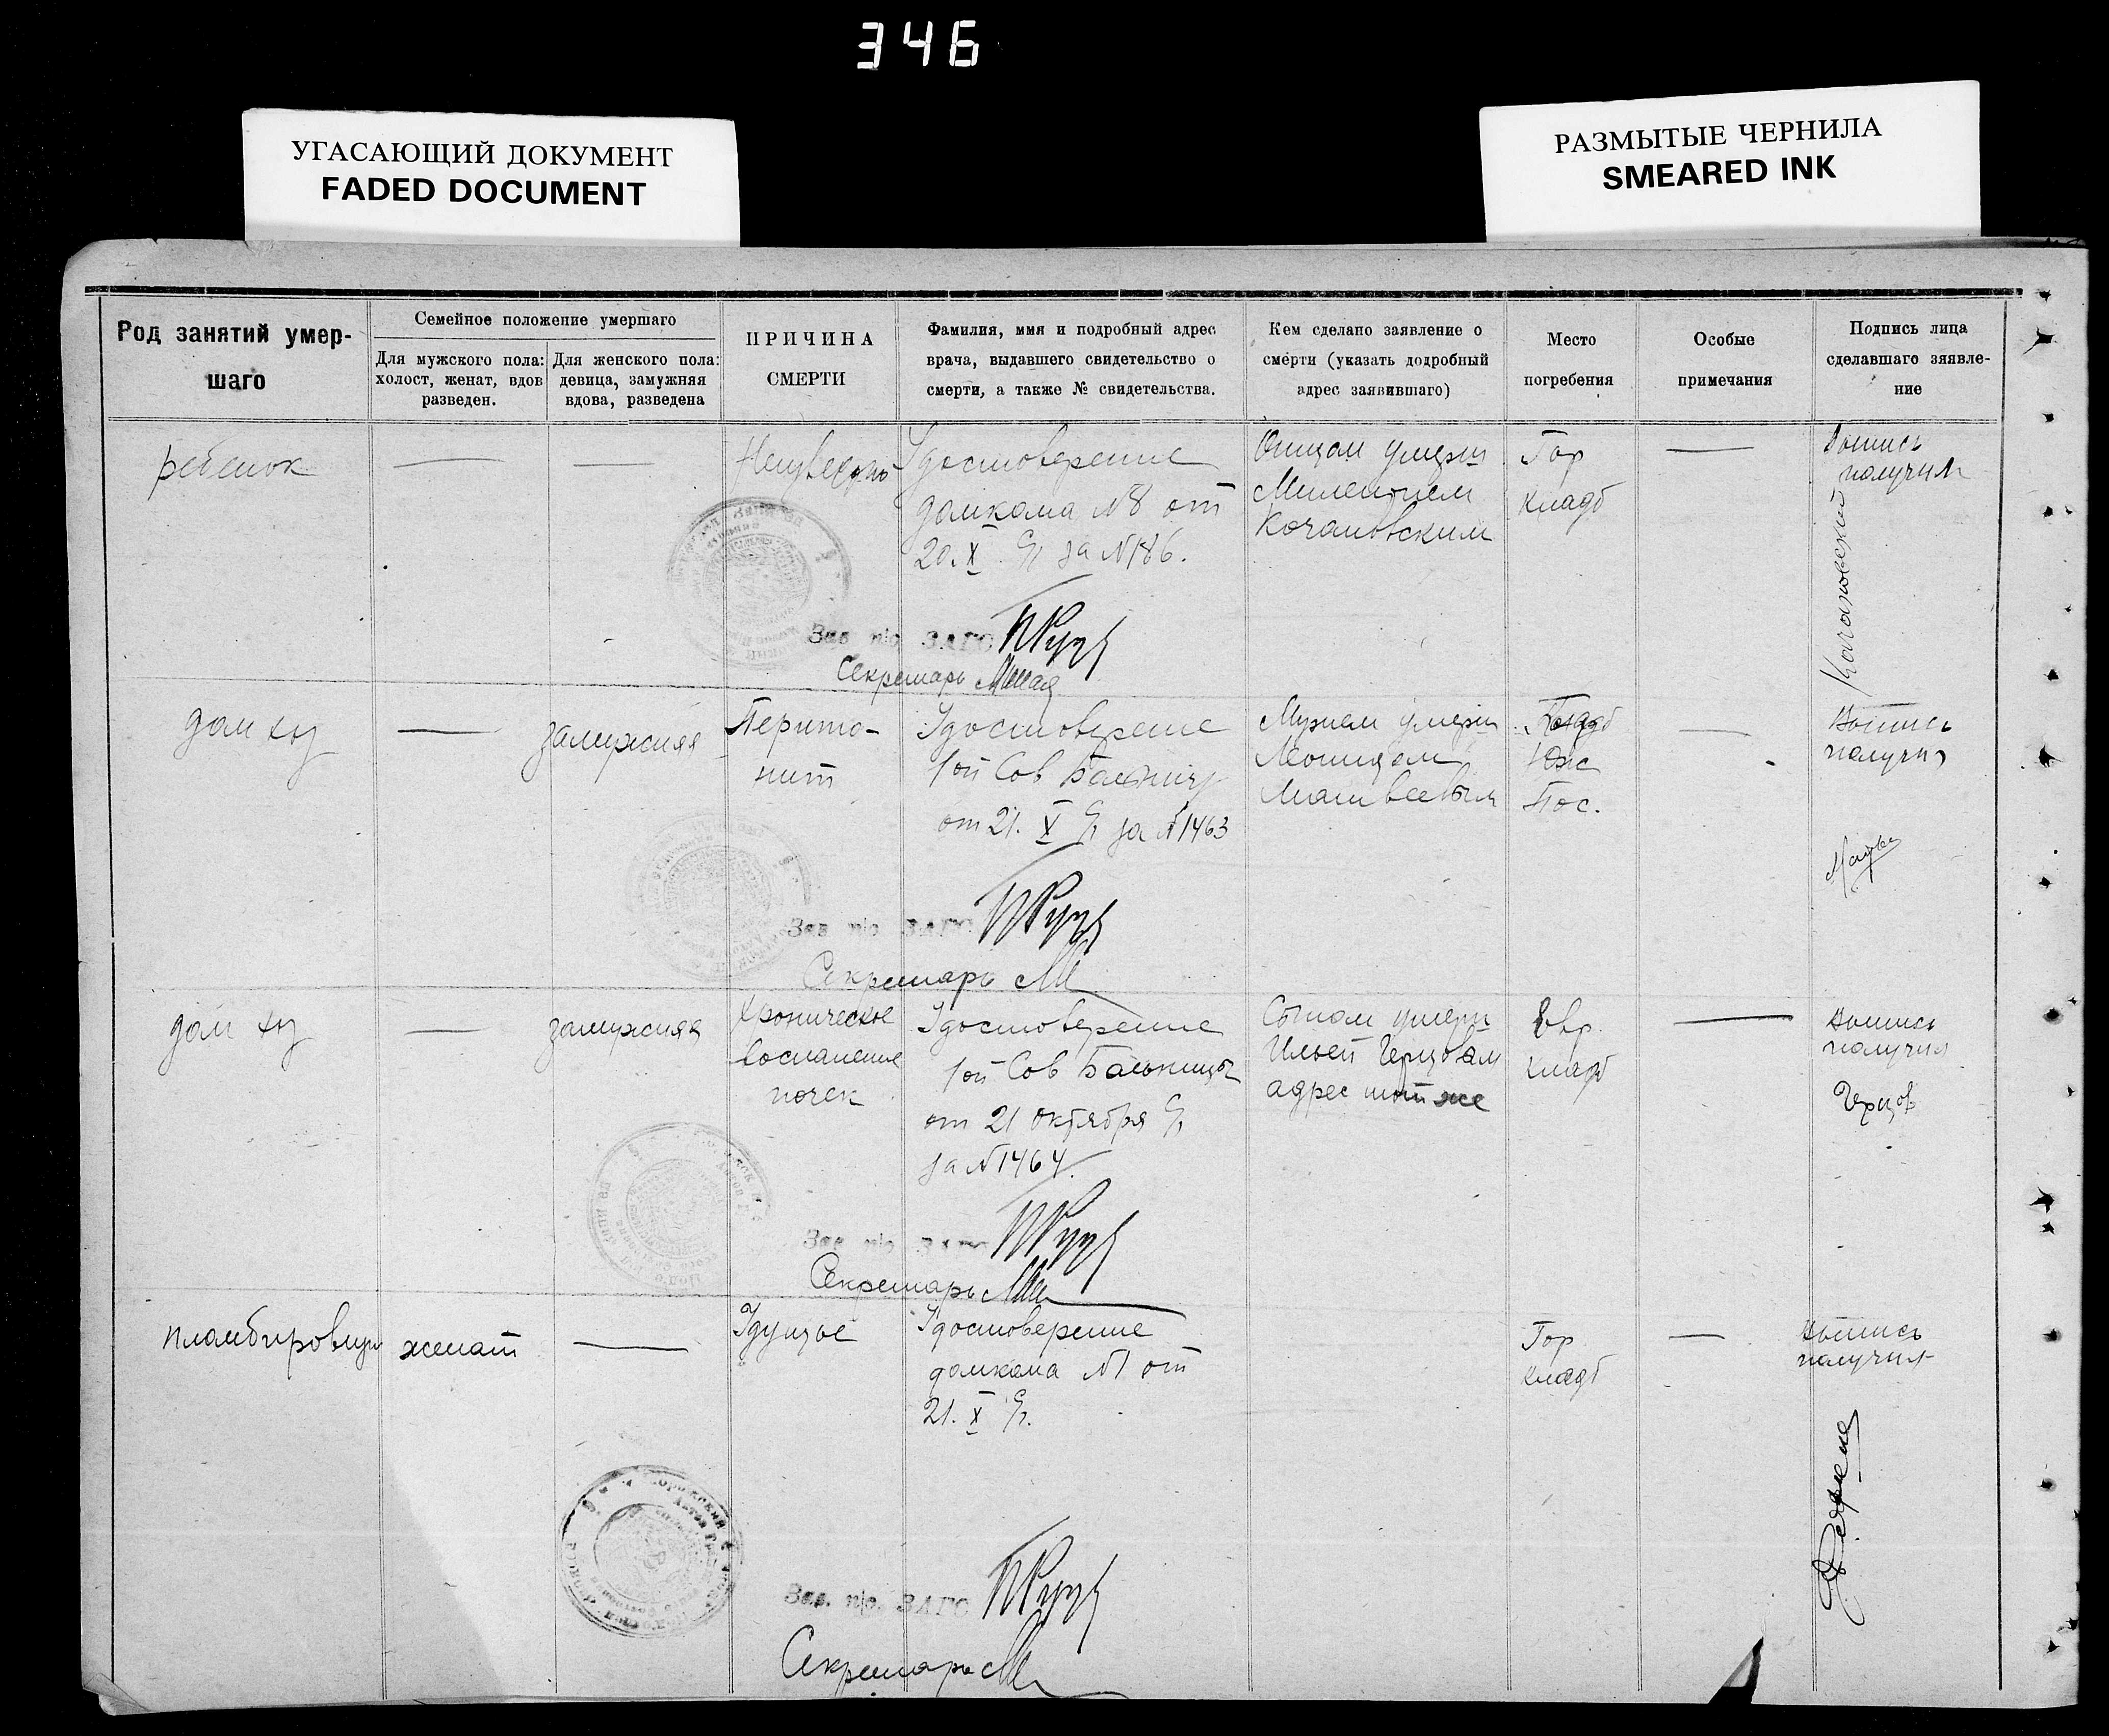 346
УГАСАЮЩИЙ ДОКУМЕНТ
FADED DOCUMENT
РАЗМЫТЫЕ ЧЕРНИЛА
SMEARED INK
Род занятий умер-
шаго
Семейное положение умершаго
Для мужского пола:
холост, женат, вдов
разведен.
Для женского пола:
девица, замужняя
вдова, разведена
ПРИЧИНА
СМЕРТИ
Фамилия, имя и подробный адрес
врача, выдавшего свидетельство о
смерти, а также № свидетельства.
Кем сделано заявление о
смерти (указать додробный
адрес заявившаго)
Место
погребения
Особые
примечания
Подпись лица
сделавшаго зяявле-
ние
ребенок
—
—
Удостоверение
домкома №8 от
20. X за №186.
Отцом умерш
Милентием
Кочановским
Гор
кладб
—
Выпись
получил
Кочановский
Зав п/о ЗАГС
Секретарь
дом хоз
—
замужняя
Перито-
нит
Удостоверение
1ой Сов Больницы
от 21. X за №1463
Мужем умерш
Леонидом
Матвеевым
Юж
Пос.
—
Выпись
получил
Зав п/о ЗАГС
Секретарь
дом хоз
—
замужняя
Хроническое
воспаление
почек
Удостоверение
1ой Сов Больницы
от 21 октября
за №1464.
Сыном умерш
Ильей Герцовым
адрес тот же
Евр.
кладб
—
Выпись
получил
Герцов
Зав п/о ЗАГС
Секретарь
пломбировщик
женат
—
Удушье
Удостоверение
домкома №1 от
21. X
Гор
кладб
—
Выпись
получил
Зав. п/о. ЗАГС
Секретарь